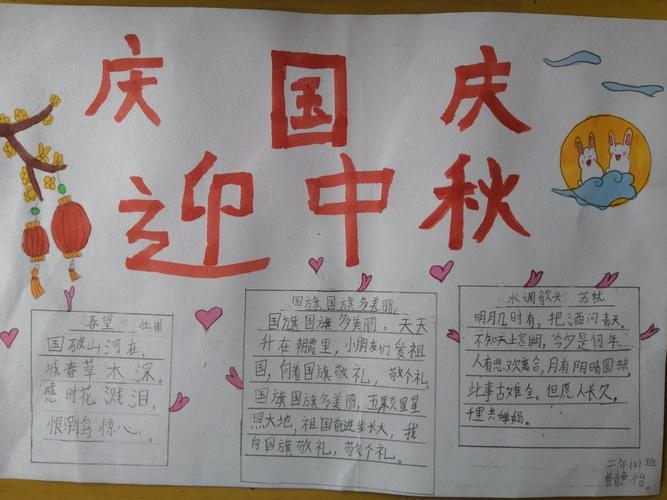 庆国庆
迎中秋
春望 杜甫
国破山河在,
城春草木深。
感时花溅泪,
恨别鸟惊心。
国旗国旗多美丽
国旗国旗多美丽,天天
升在朝霞里,小朋友们爱祖
国,向着国旗敬礼,敬个礼。
国旗国旗多美丽,五颗星星
照大地,祖国前进我长大,我
向国旗敬礼,敬个礼。
水调歌头 苏轼
明月几时有,把酒问青天。
不知天上宫阙,今夕是何年…
人有悲欢离合,月有阴晴圆缺
此事古难全。但愿人长久。
千里共婵娟。
二年(3)班
静怡